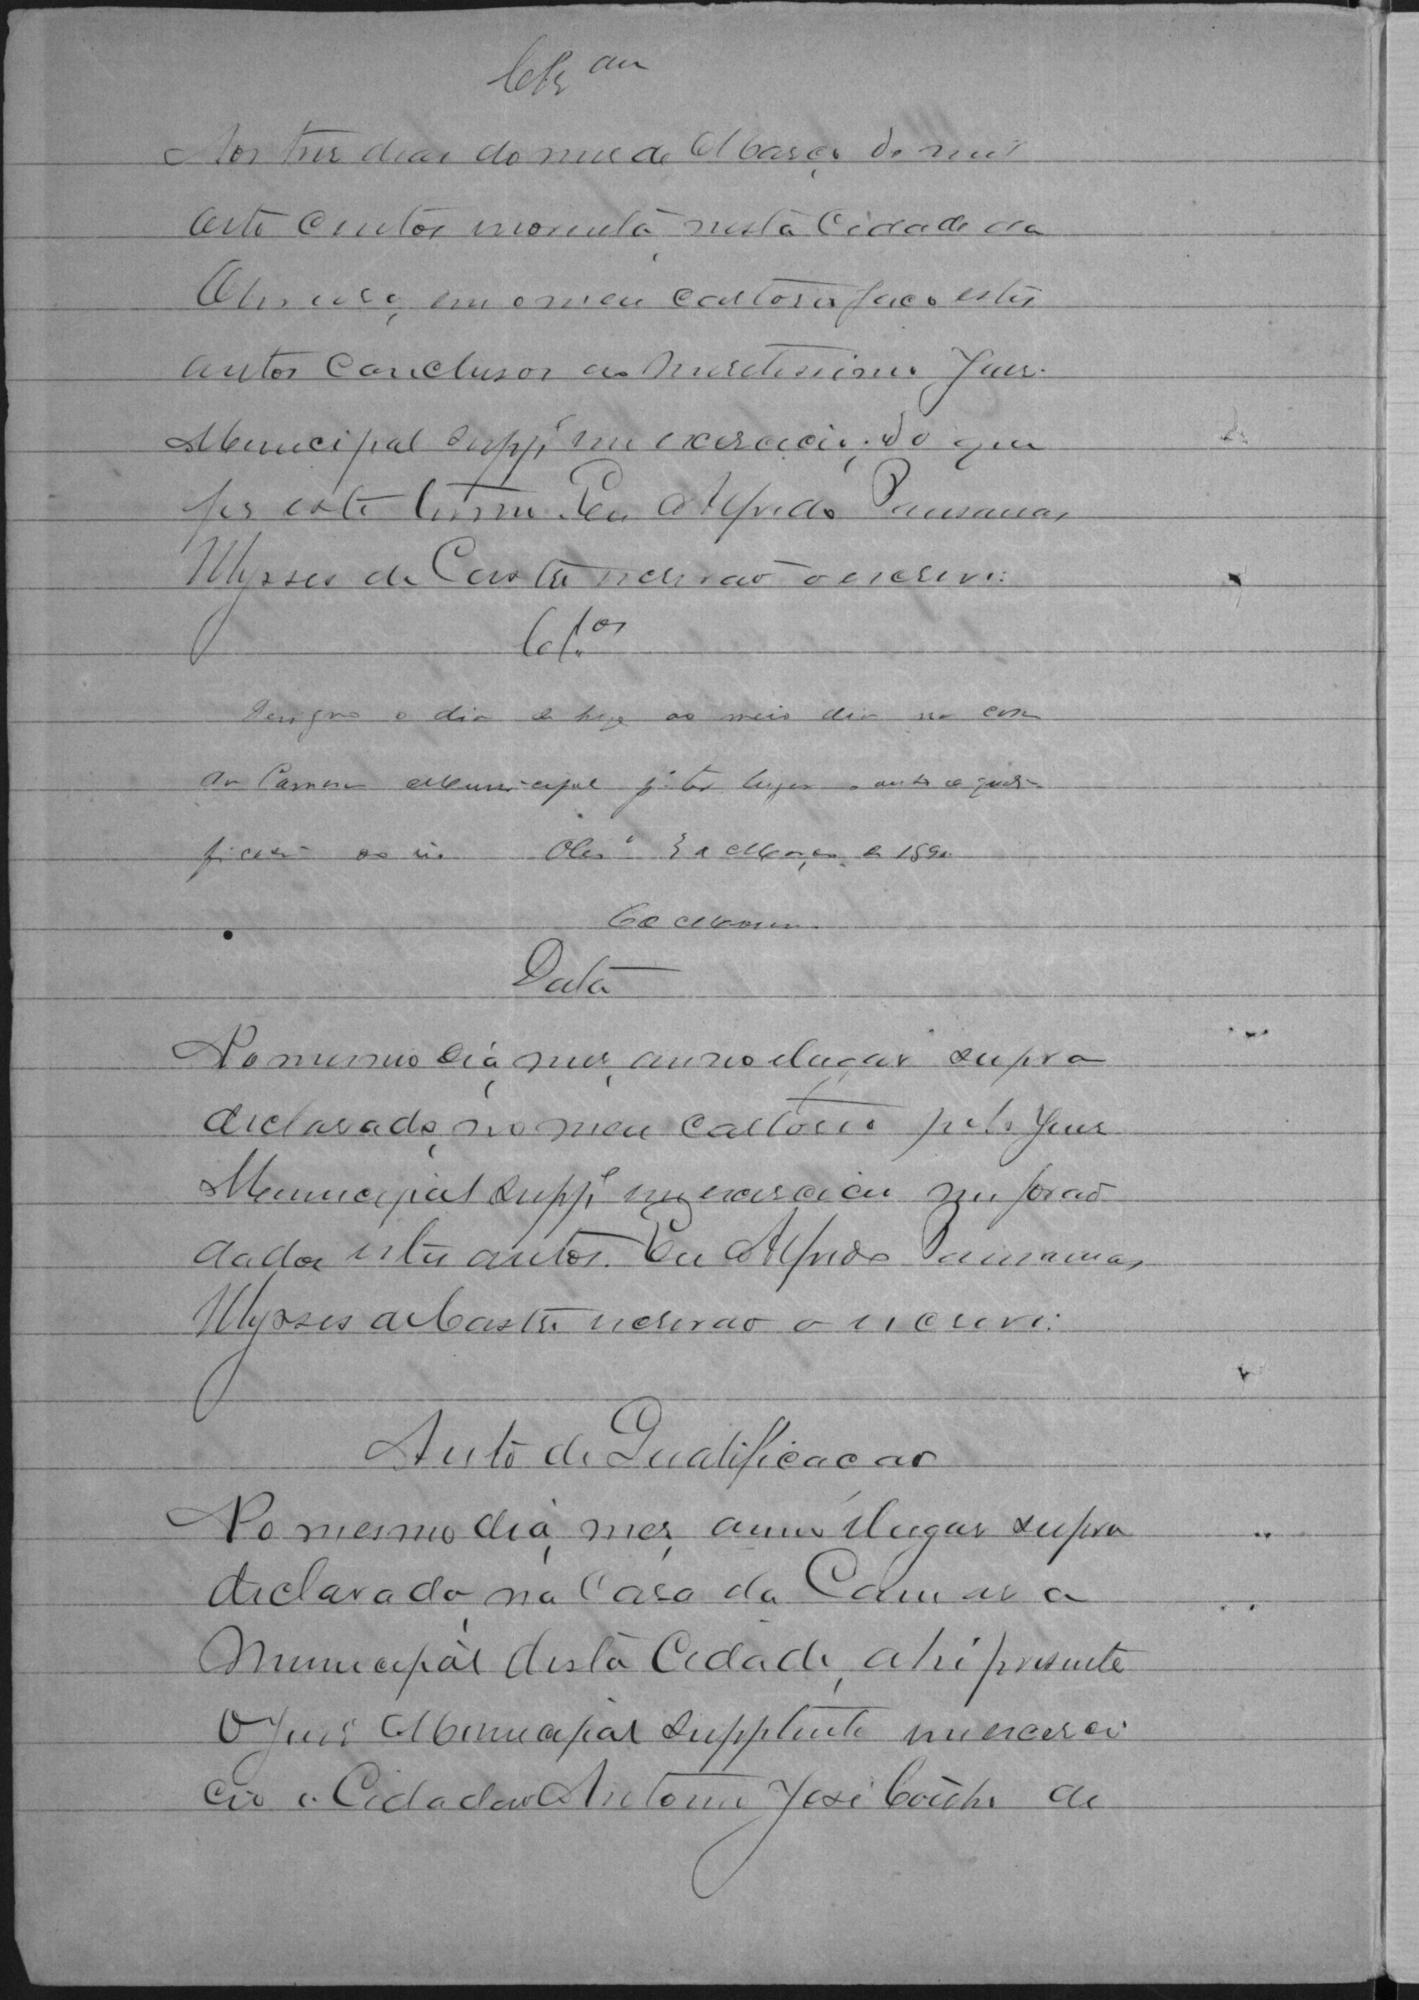 Cls.am
Aos tres dias do mes de Março de mil
oito centos noventa, nesta Cidade da
em o meu cartorio faço estes
autos conclusos ao Meretissimo Juiz
Municipal Supp.e em exercicio, do que
fis este termo. Eu Alfredo Pausanias
Ulysses de Castro escrivão o escrevi.
Cl.os
Designo o dia de hoje ao meio dia na casa
da Camara Municipal p.a ter lugar o auto de quali-
ficação ao reo 3 de Março de 1890
Data
No mesmo dia, mes, anno e lugar supra
declarado, no meu cartorio pelo Juiz
Municipal Supp.e em exercicio me forão
dados estes autos. Eu Alfredo Pausanias
Ulysses de Castro escrivão o escrevi.
Auto de Qualificação
No mesmo dia, mes, anno e lugar supra
declarado, na Casa da Camara
Municipal desta Cidade, ahi presente
o Juis Municipal Supplente em exerci
cio o Cidadão Antonio José Coêlho de